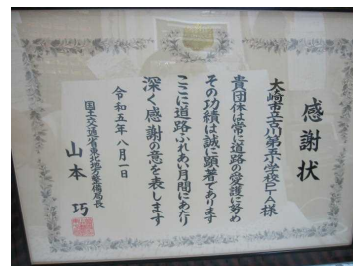 感謝状
大崎市立古川第五小学校PTA様
貴団体は常に道路の愛護に努め
その功績は誠に顕著であります
ここに道路ふれあい月間にあたり
深く感謝の意を表します
令和五年八月一日
国土交通省東北地方整備局長
山本巧